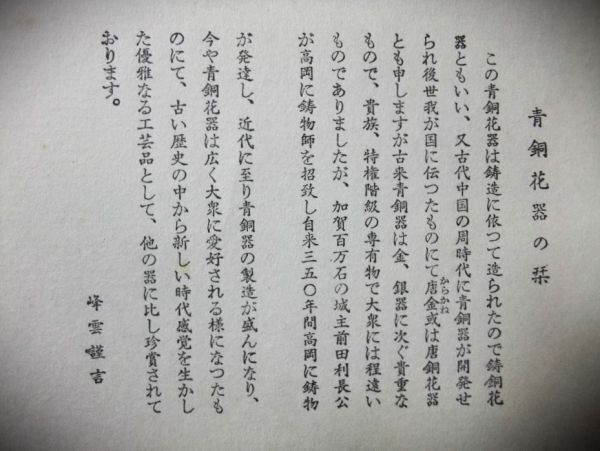 青銅花器の栞
この青銅花器は鋳造に依つて造られたので鋳銅花
器ともいい、又古代中国の周時代に青銅器が開発せ
られ後世我が国に伝つたものにて唐金或は唐銅花器
からかね
とも申しますが古来青銅器は金、銀器に次ぐ貴重な
もので、貴族、特権階級の専有物で大衆には程遠い
ものでありましたが、加賀百万石の城主前田利長公
が高岡に鋳物師を招致し自来三五〇年間高岡に鋳物
が発達し、近代に至り青銅器の製造が盛んになり、
今や青銅花器は広く大衆に愛好される様になつたも
のにて、古い歴史の中から新しい時代感覚を生かし
た優雅なる工芸品として、他の器に比し珍賞されて
おります。
峰雲謹言